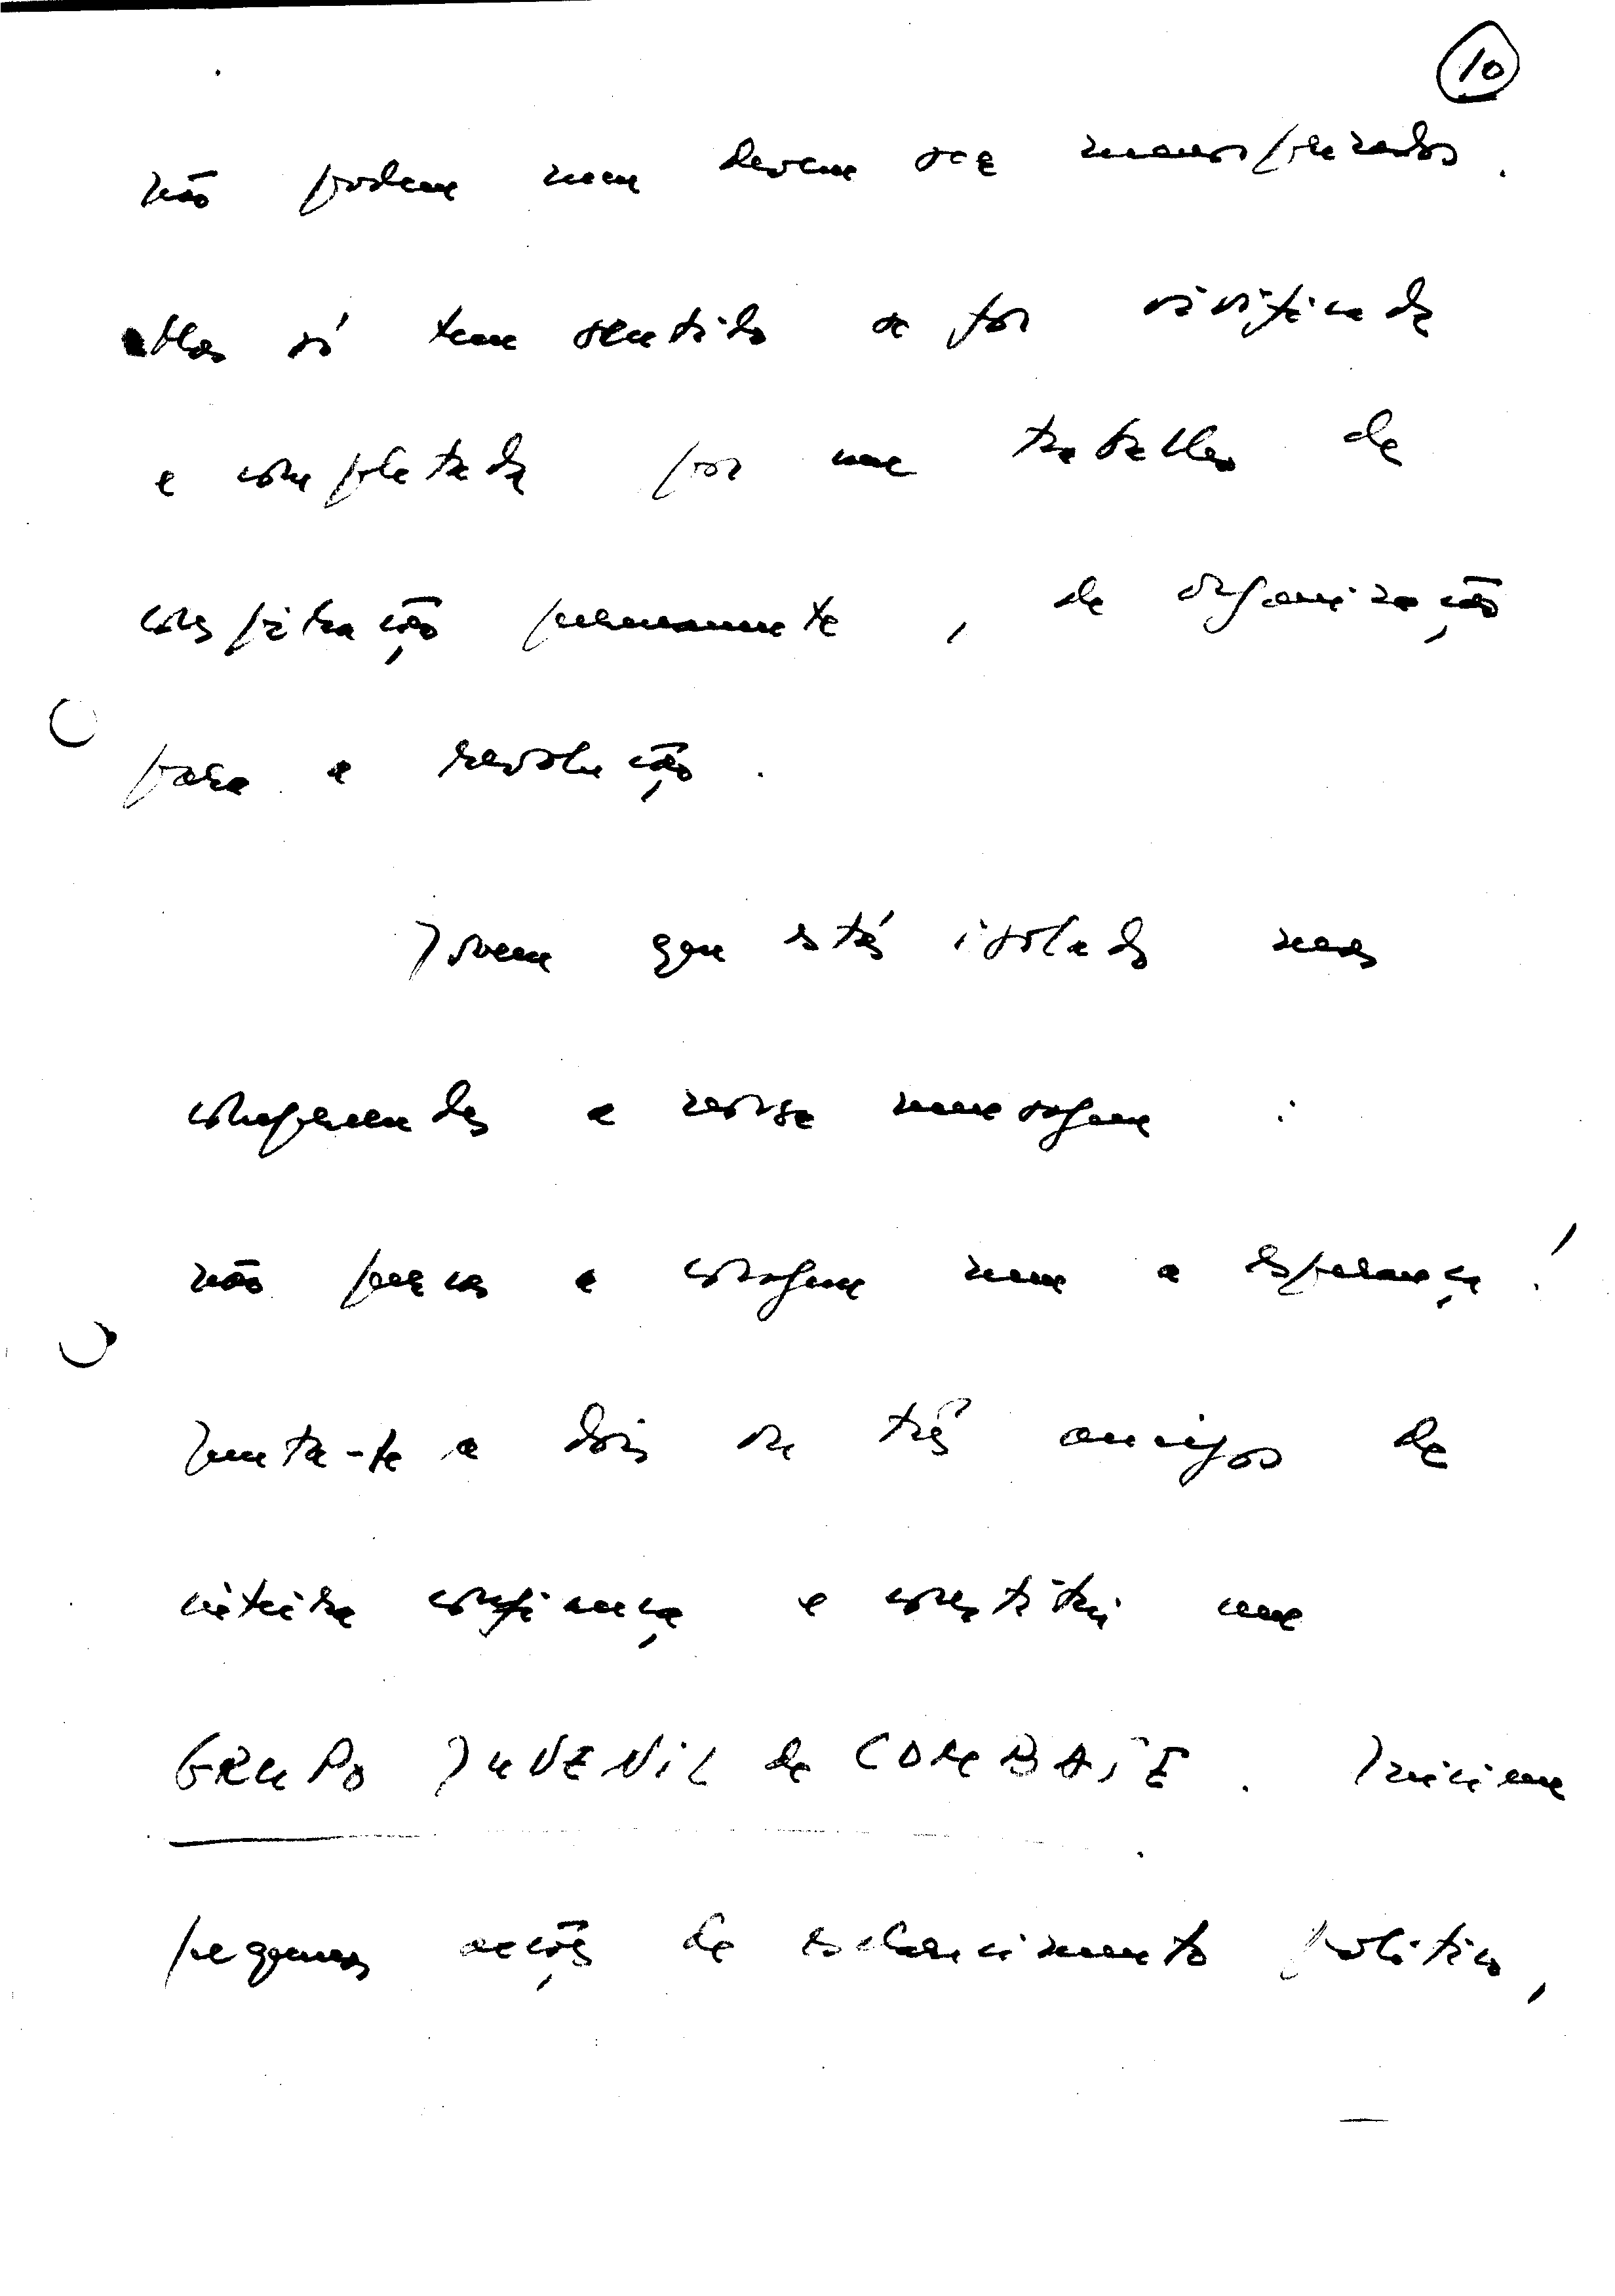 10
não podem nem devem ser menosprezados.
só tem sentido se for vivificada
e completada por um trabalho de
conspiração permanente, de organização
para a revolução.
Jovem que estás isolado mas
compreendes a nossa mensagem:
não percas a coragem nem a esperança!
Junta-te a dois ou três amigos de
inteira confiança e constitui um
GRUPO JUVENIL de COMBATE. Iniciem
pequenas acções de esclarecimento político,